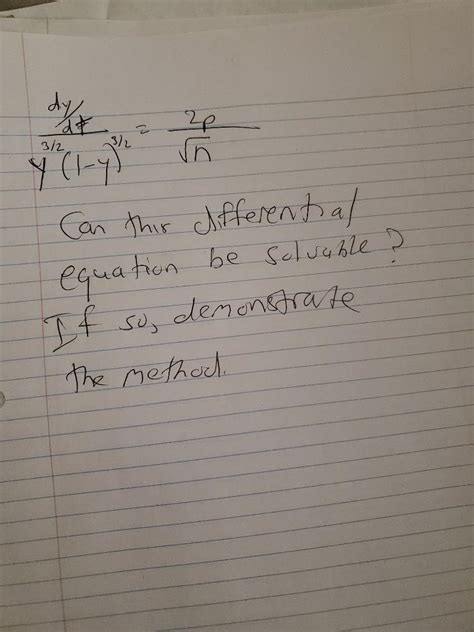 dy/dt / y^{3/2} (1-y)^{3/2} = 2p / √n
Can this differential
equation be solvable?
If so, demonstrate
the method.